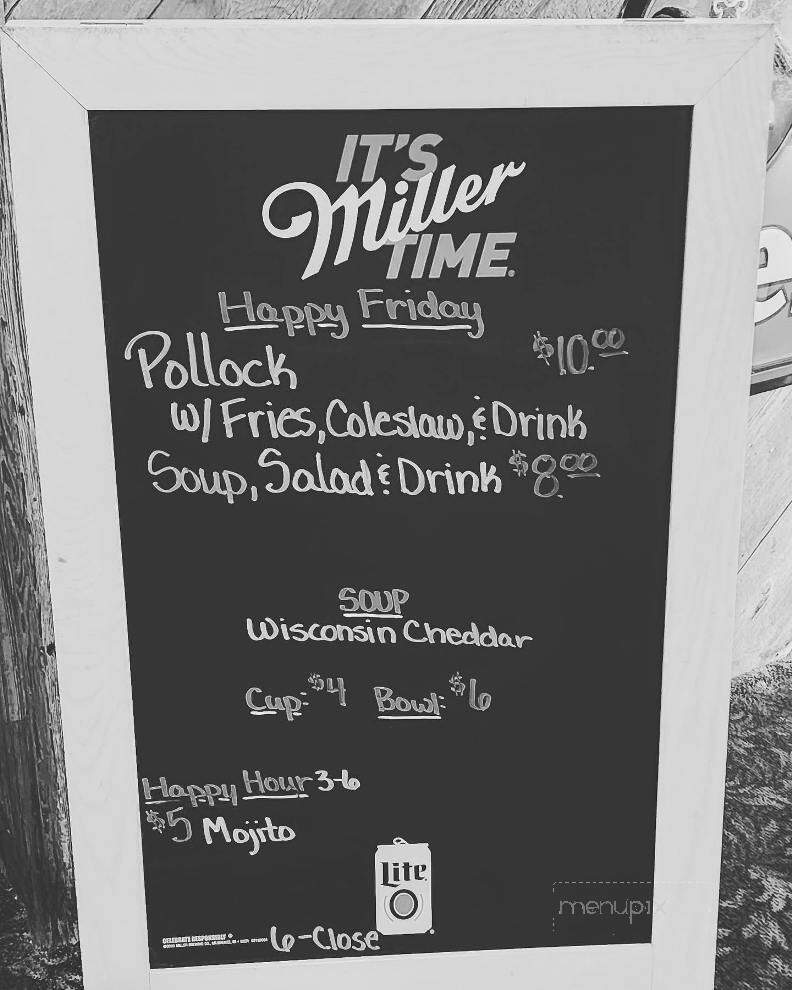 IT'S
Miller
TIME.
Happy Friday
Pollock $10.00
w/ Fries, Coleslaw, & Drink
Soup, Salad & Drink $8.00
SOUP
Wisconsin Cheddar
Cup: $4 Bowl: $6
Happy Hour 3-6
$5 Mojito
Lite
menupix
CELEBRATE RESPONSIBLY
6-Close